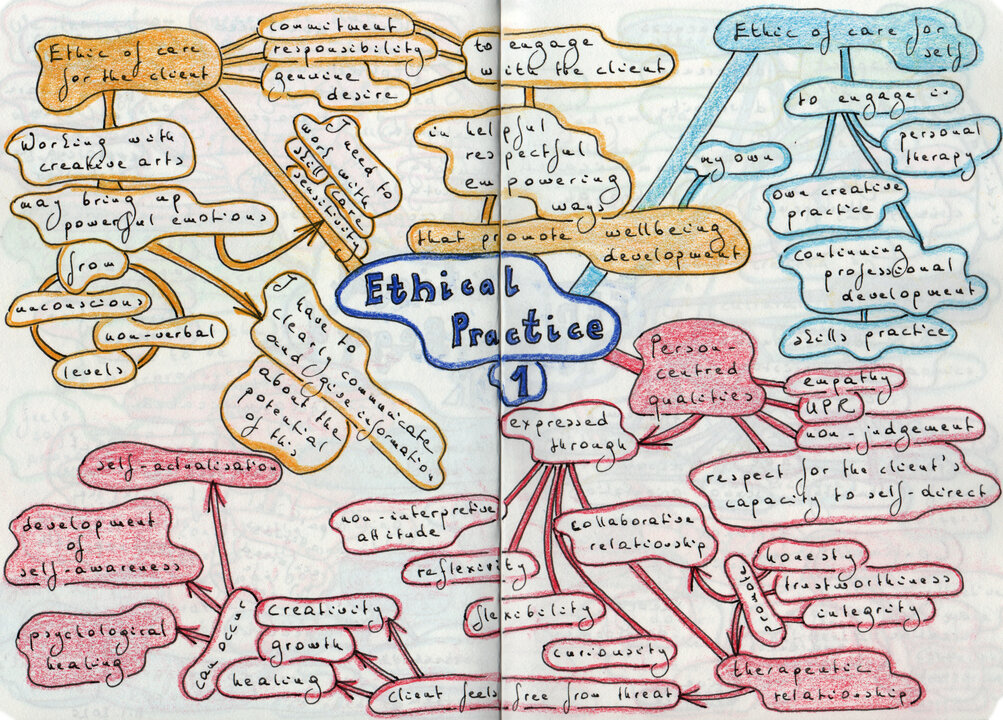 Ethic of care
for the client
commitment
responsibility
genuine
desire
to engage
with the client
in helpful
respectful
empowering
ways
that promote wellbeing
development
Working with
creative arts
may bring up
powerful emotions
from
unconscious
non-verbal
levels
I need to
work with
skill care
sensitivity
I have to
clearly communicate
and give information
about the
potential
of this
Ethical
Practice
1
Ethic of care for
self
my own
to engage in
personal
therapy
own creative
practice
continuing
professional
development
skills practice
Person-
centred
qualities
empathy
UPR
non-judgement
respect for the client's
capacity to self-direct
expressed
through
non-interpretive
attitude
reflexivity
flexibility
curiosity
collaborative
relationship
honesty
trustworthiness
integrity
promote
therapeutic
relationship
client feels free from threat
creativity
growth
healing
can occur
self-actualisation
development
of
self-awareness
psychlogical
healing